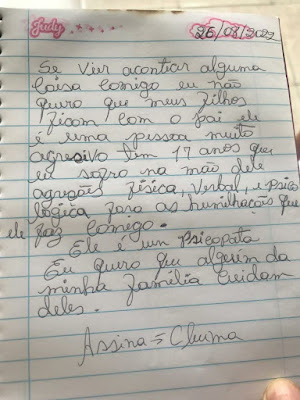 Judy
26/08/2022
Se vier acontiar alguma
Coisa Comigo eu não
quero que meus filhos
ficam com o pai ele
é uma pessoa muito
agresivo tem 17 anos que
eu sofro na mão dele
agreções física, verbal, e psico
logica fora as humilhações que
ele faz comigo.
Ele é um Psicopata
Eu quero que alguem da
minha familia Cuidam
deles.
Assina =